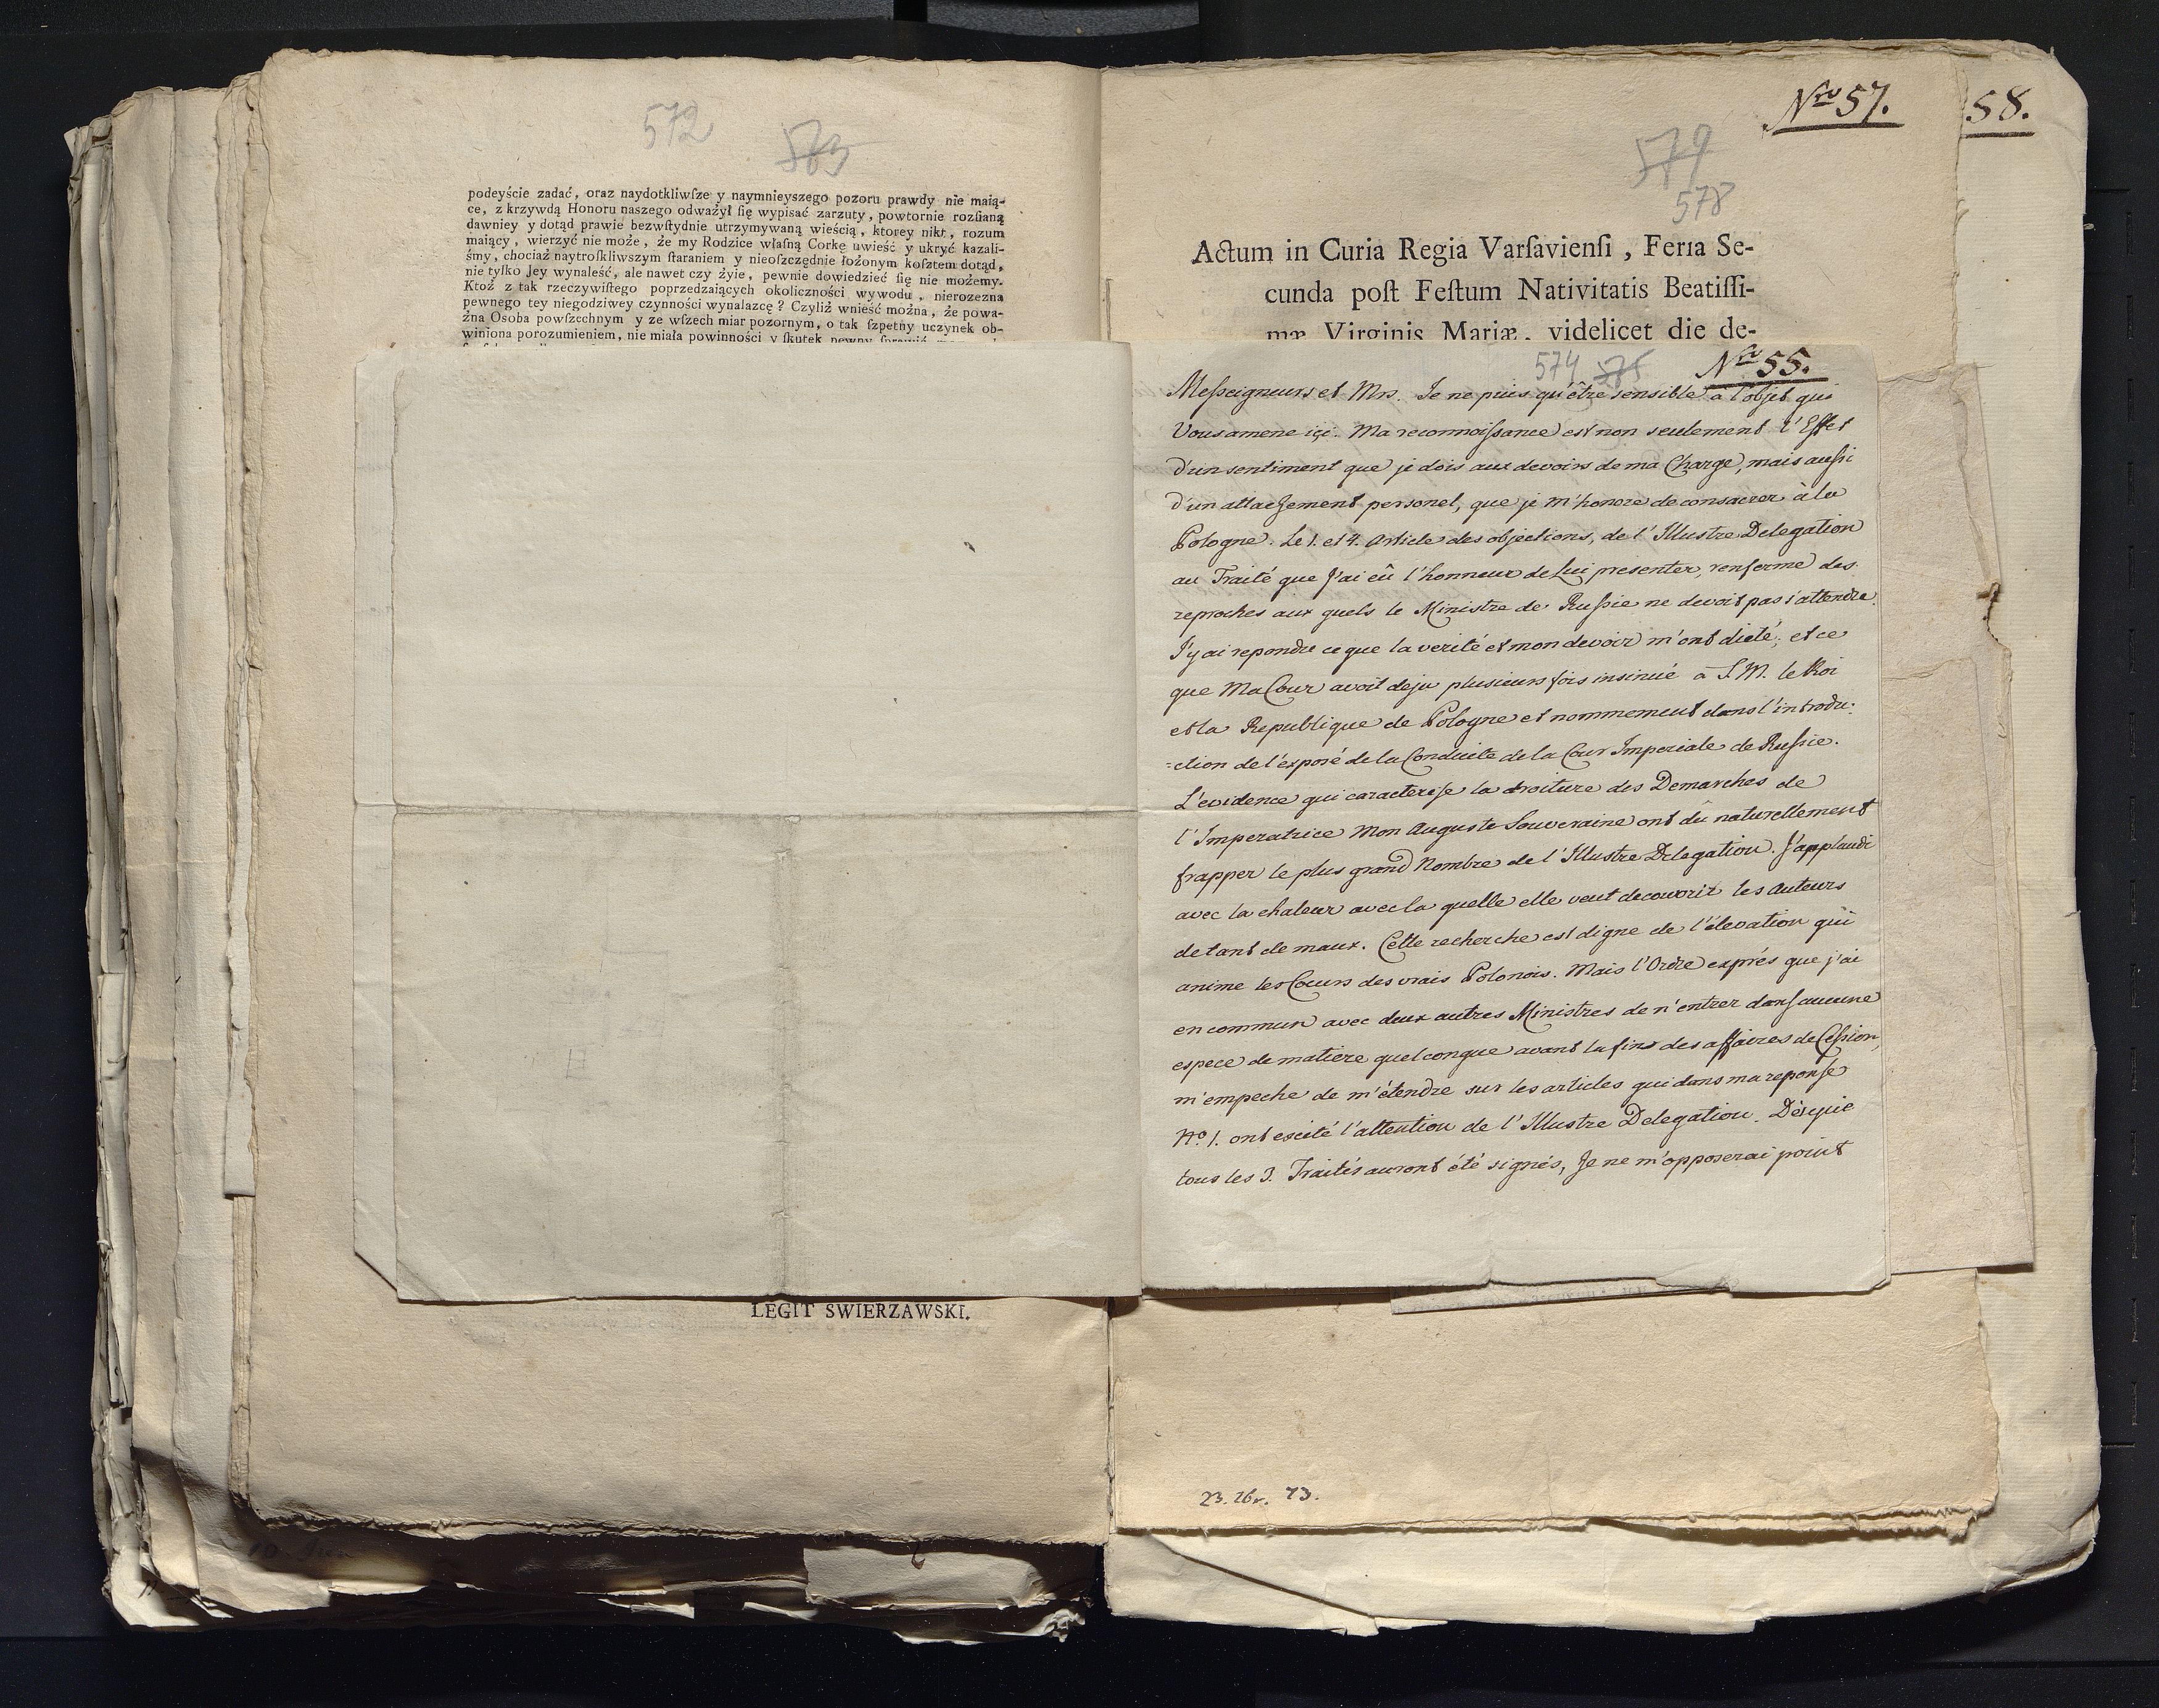 572
583
podeyście zadać, oraz naydotkliwſze y naymnieyszego pozoru prawdy nie maią-
ce, z krzywdą Honoru naszego odważył ſię wypisać zarzuty, powtornie rozſianą
dawniey y dotąd prawie bezwſtydnie utrzymywaną wieścią, ktorey nikt, rozum
maiący, wierzyć nie może, że my Rodzice właſną Corkę uwieść y ukryć kazali-
śmy, chociaż naytroſkliwszym ſtaraniem y nieoſzczędnie łożonym koſztem dotąd,
nie tylko Jey wynaleść, ale nawet czy żyie, pewnie dowiedzieć ſię nie możemy.
Ktoż z tak rzeczywiſtego poprzedzaiących okoliczności wywodu, nierozezna
pewnego tey niegodziwey czynności wynalazcę? Czyliż wnieść można, że powa-
żna Osoba powſzechnym y ze wſzech miar pozornym, o tak ſzpetny uczynek ob-
winiona porozumieniem, nie miała powinności y ſkutek pewny
LEGIT SWIERZAWSKI.
Nro 57.
58.
579
578
Actum in Curia Regia Varſavienſi, Feria Se-
cunda poſt Feſtum Nativitatis Beatiſſi-
mæ Virginis Mariæ, videlicet die de-
574 575 Nro 55.
Meſseigneurs et Mrs. Je ne puis qu'être sensible à l'objet qui
Vous amene içi. Ma reconnoiſsance est non seulement l'Effet
d'un sentiment que je dois aux devoirs de ma Charge, mais auſsi
d'un attachement personel, que je m'honore de consacrer à la
Pologne. Le 1. et 4. Article des objections, de l'Illustre Delegation
au Traité que J'ai eû l'honneur de Lui presenter, renferme des
reproches aux quels le Ministre de Ruſsie ne devoit pas s'attendre.
J'y ai repondu ce que la verité et mon devoir m'ont dicté, et ce
que Ma Cour avoit deja plusieurs fois insinué à S.M. le Roi
et la Republique de Pologne et nommement dans l'introdu-
=ction de l'exposé de la Conduite de la Cour Imperiale de Ruſsie.
L'evidence qui caracteriſe la droiture des Demarches de
l'Imperatrice Mon Auguste Souveraine ont dû naturellement
frapper le plus grand Nombre de l'Illustre Delegation. J'applaudi
avec la chaleur avec la quelle elle veut decouvrir les Auteurs
de tant de maux. Cette recherche est digne de l'élevation qui
anime les Cœurs des vrais Polonois. Mais l'Ordre exprés que j'ai
en commun avec deux autres Ministres de n'entrer danſ aucune
espece de matiere quelconque avant la fins des affaires de Ceſsion,
m'empeche de m'étendre sur les articles qui dans ma reponſe
No 1. ont excité l'attention de l'Illustre Delegation. Dèsque
tous les 3. Traités auront été signés, Je ne m'opposerai point
23. 7br. 73.